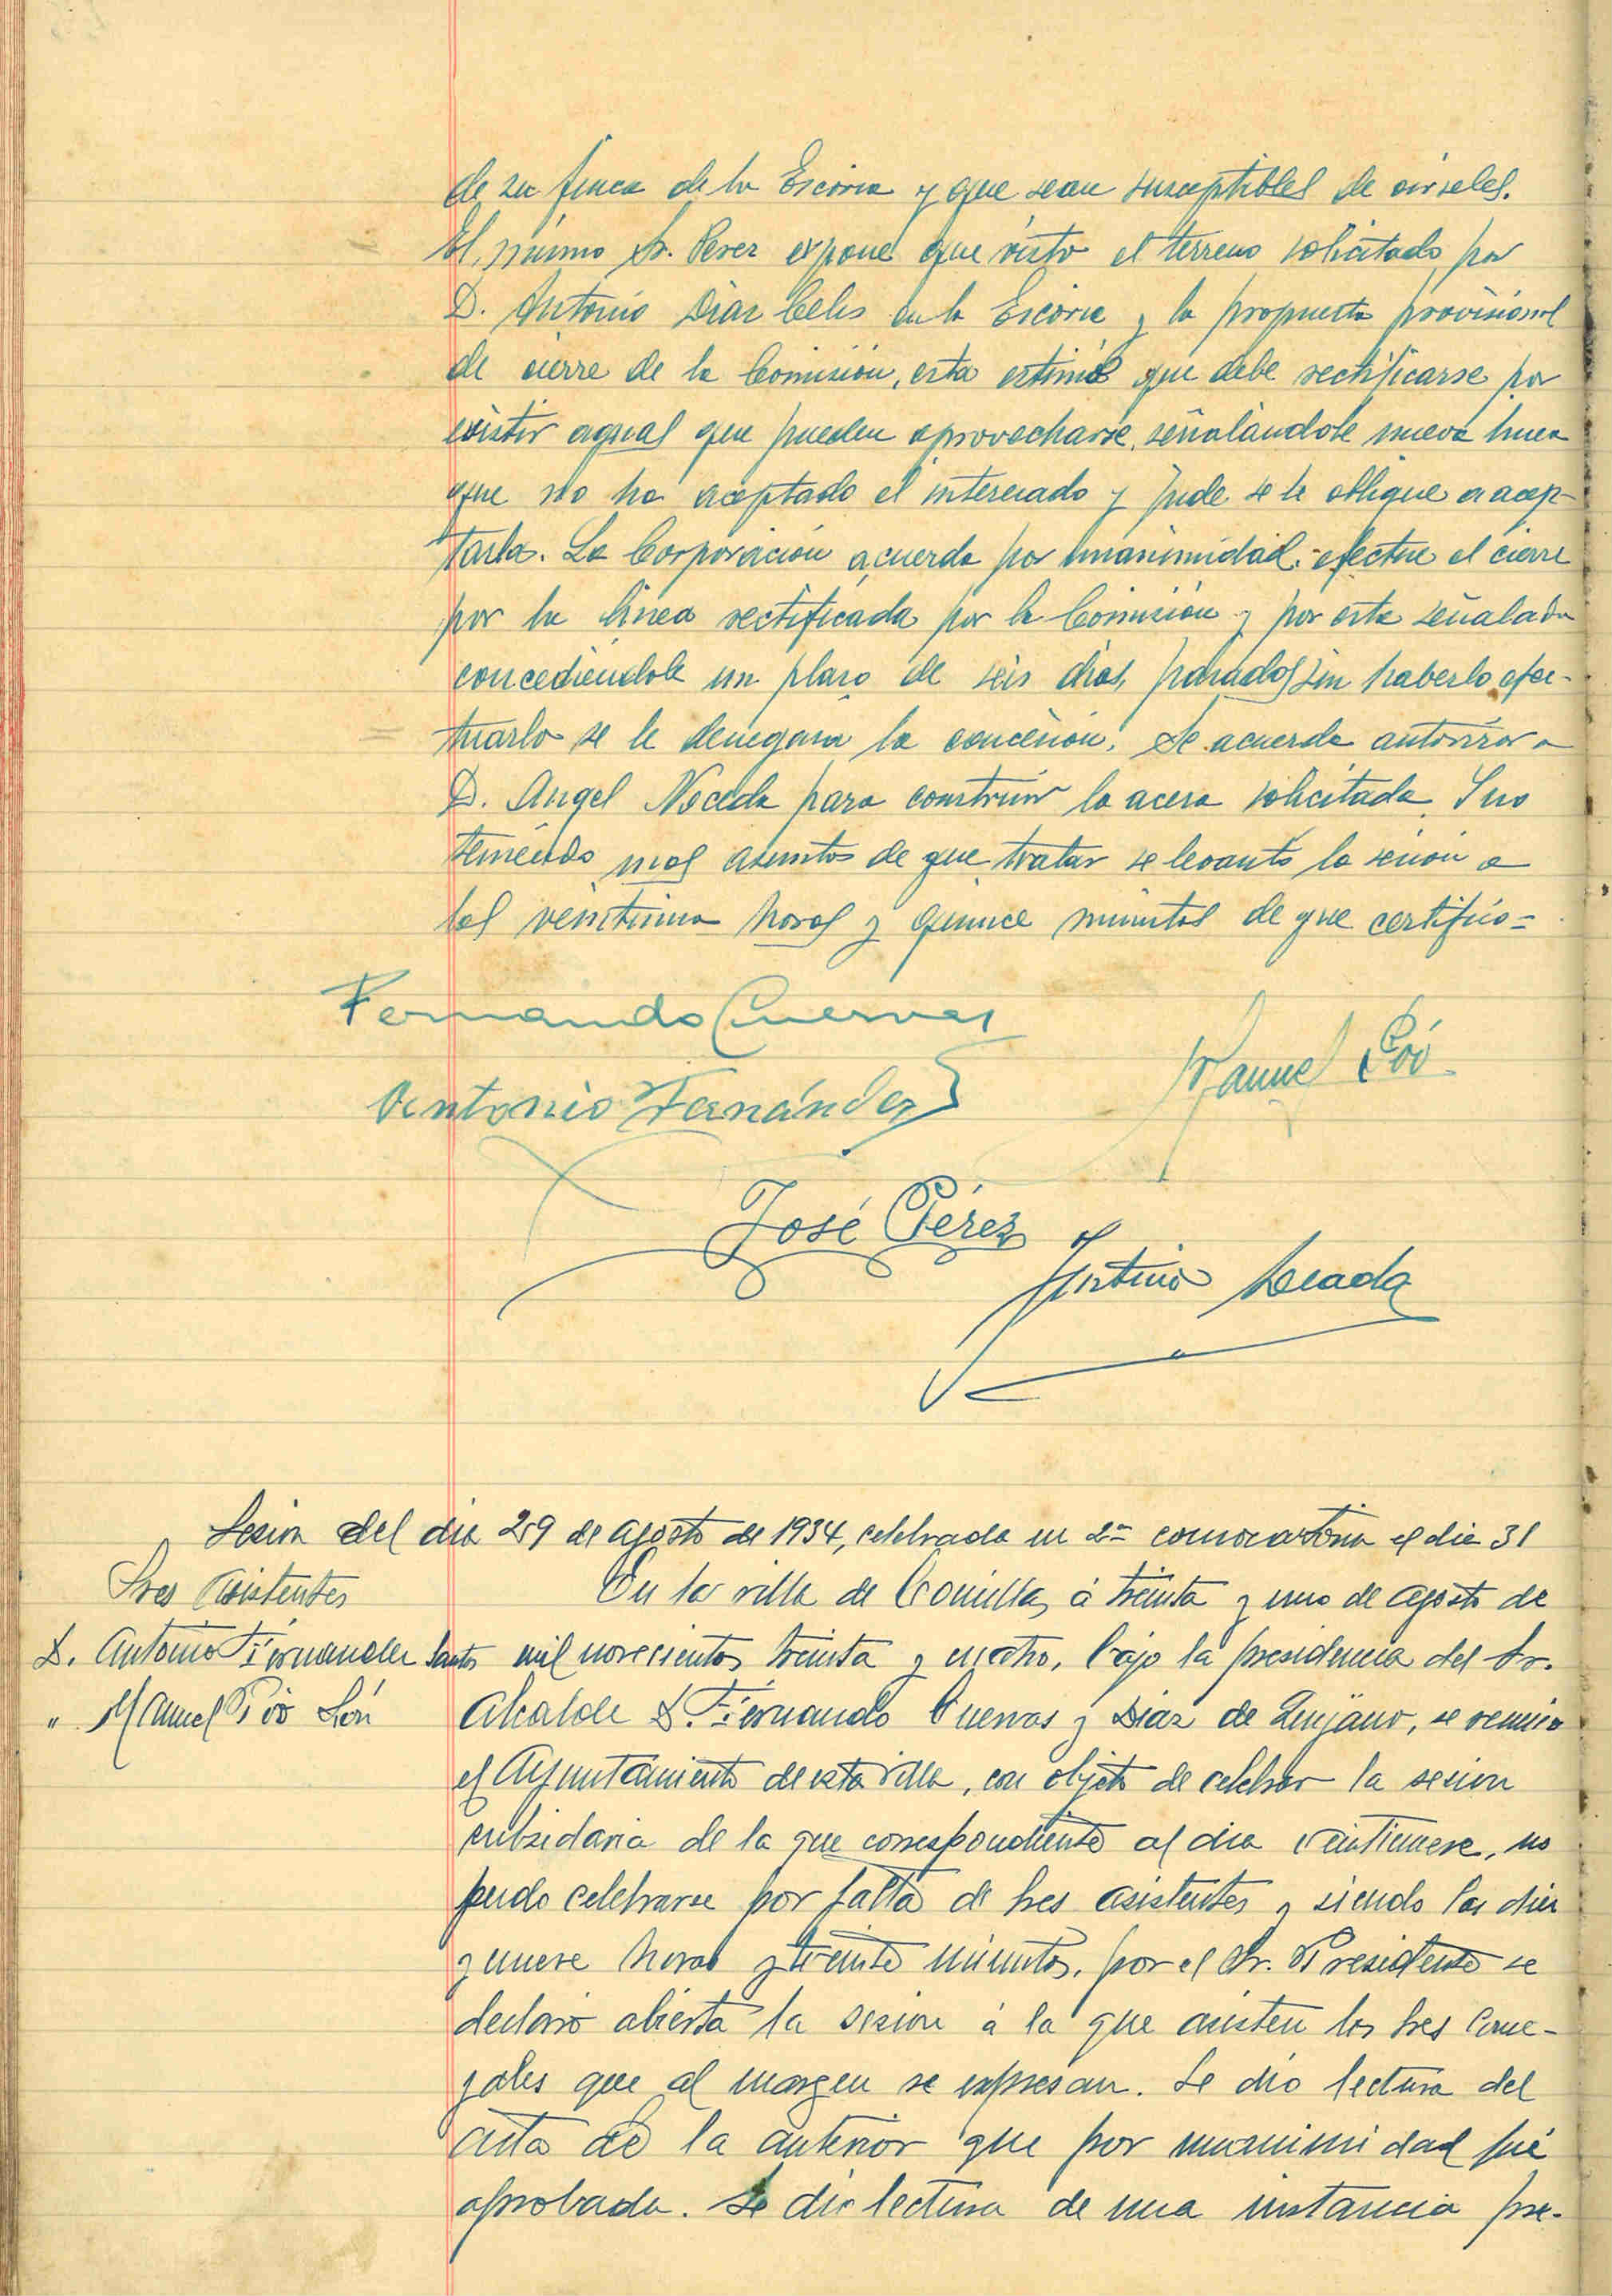 de su finca de la Escoria y que sean susceptibles de
El mismo Sr. Perez expone que visto el terreno solicitado por
D. Antonio Diaz Celis en la Escoria y la propuesta provisional
de cierre de la Comisión, esta estimó que debe rectificarse por
existir aguas que pueden aprovecharse, señalándole nueva linea
que no ha aceptado el interesado y pide se le oblique a acep-
tarla. La Corporación acuerda por unanimidad: efectue el cierre
por la linea rectificada por la Comisión y por esta señalada
concediendole un plazo de seis dias, pasados sin haberlo efec-
tuarlo se le denegará la concesión. Se acuerda autorizar a
D. Angel Noceda para construir la acera solicitada. Y no
teniendo mas asuntos de que tratar se levantó la sesión a
las veintiuna horas y quince minutos de que certifico=
Fernando Cuevas
Manuel Póo
Antonio Fernández
José Pérez
Sesion del dia 29 de agosto de 1934, celebrada en 2ª convocatoria el dia 31
Sres Asistentes
En la villa de Comillas, á treinta y uno de agosto de
D. Antonio Fernandez Santos
mil novecientos treinta y cuatro, bajo la presidencia del Sr.
" Manuel Póo
Alcalde D. Fernando Cuevas y Diaz de Quijano, se reunio
el Ayuntamiento de esta villa, con objeto de celebrar la sesion
subsidaria de la que correspondiente al dia veintinueve, no
pudo celebrarse por falta de Sres asistentes y siendo las diez
y nueve horas y treinta minutos, por el Sr. Presidente se
declaró abierta la sesion á la que asisten los Sres Conce-
jales que al margen se expresan. Se dió lectura del
acta de la anterior que por unanimidad fué
aprobada. Se dió lectura de una instancia pre-